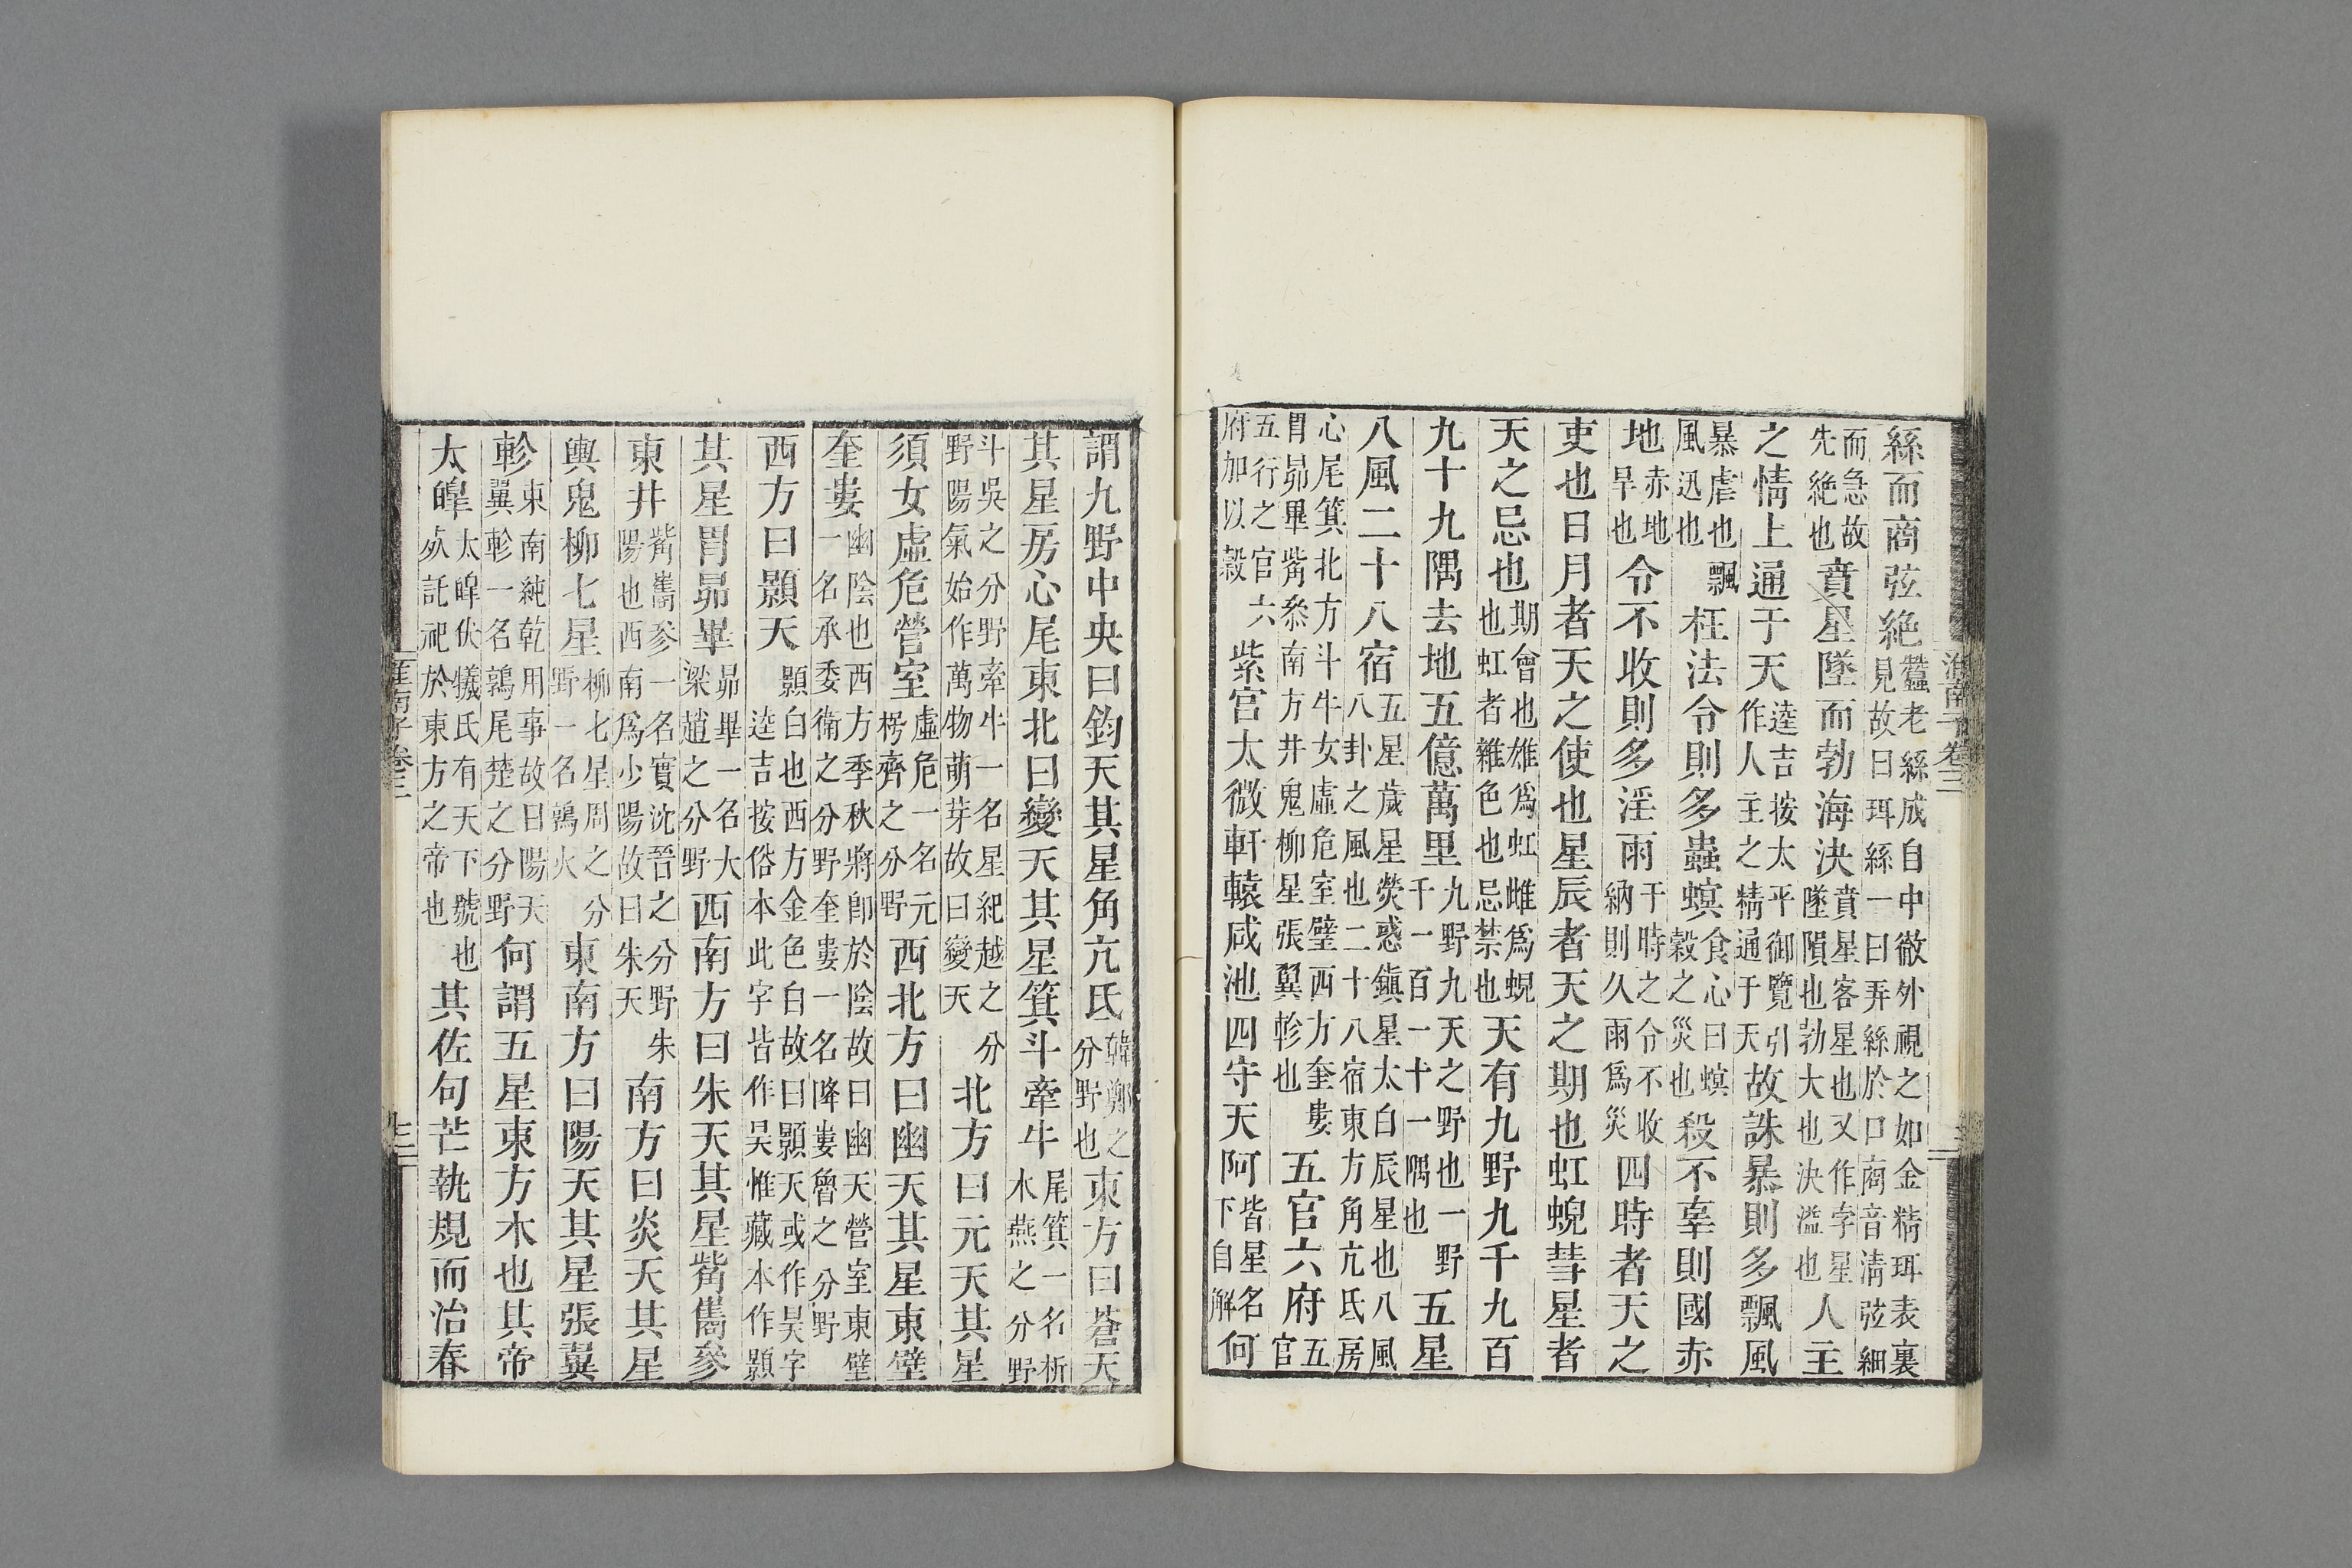 絲而商弦絶蠶老絲成自中徹外視之如金精珥表裏見故曰珥絲一曰弄絲於口商音清弦細
而急故先絶也賁星墜而勃海決賁星客星也又作孛星墜隕也勃大也決溢也人主
之情上通于天逵吉按太平御覽引作人主之精通于天故誅暴則多飄風
暴虐也飄風迅也枉法令則多蟲螟食心曰螟穀之災也殺不辜則國赤
地赤地旱也令不收則多淫雨干時之令不收納則久雨爲災四時者天之
吏也日月者天之使也星辰者天之期也虹蜺彗星者
天之忌也期會也雄爲虹雌爲蜺也虹者雜色也忌禁也天有九野九千九百
九十九隅去地五億萬里九野九天之野也一野千一百一十一隅也五星
八風二十八宿五星歲星熒惑鎮星太白辰星也八風八卦之風也二十八宿東方角亢氐房
心尾箕北方斗牛女虛危室壁西方奎婁胃昴畢觜參南方井鬼柳星張翼軫也五官六府五官
五行之官六府加以穀紫宮太微軒轅咸池四守天阿皆星名下自解何
謂九野中央曰鈞天其星角亢氐韓鄭之分野也東方曰蒼天
其星房心尾東北曰變天其星箕斗牽牛尾箕一名析木燕之分野
斗吳之分野牽牛一名星紀越之分野陽氣始作萬物萌芽故曰變天北方曰元天其星
須女虛危營室虛危一名元枵齊之分野西北方曰幽天其星東壁
奎婁幽陰也西方季秋將卽於陰故曰幽天營室東壁一名承委衞之分野奎婁一名降婁魯之分野
西方曰顥天顥白也西方金色白故曰顥天或作昊字逵吉按俗本此字皆作昊惟藏本作顥
其星胃昴畢昴畢一名大梁趙之分野西南方曰朱天其星觜巂參
東井觜巂參一名實沈晉之分野朱陽也西南爲少陽故曰朱天南方曰炎天其星
輿鬼柳七星柳七星周之分野一名鶉火東南方曰陽天其星張翼
軫東南純乾用事故曰陽天翼軫一名鶉尾楚之分野何謂五星東方木也其帝
太皥太皥伏犧氏有天下號也死託祀於東方之帝也其佐句芒執規而治春
淮南子卷三